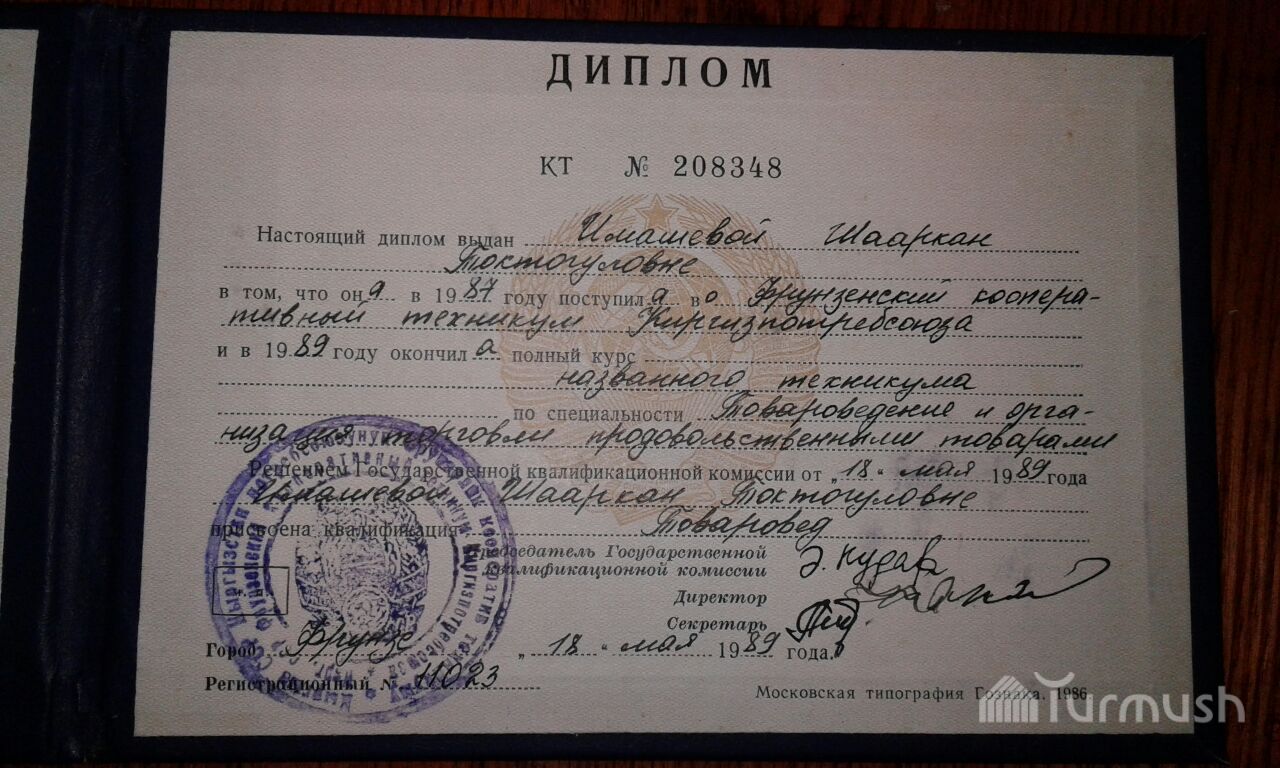 ДИПЛОМ
КТ № 208348
Настоящий диплом выдан Имашевой Шааркан
Токтогуловне
в том, что она в 1987 году поступила в о Фрунзенский коопера-
тивный техникум Киргизпотребсоюза
и в 1989 году окончила полный курс
названного техникума
по специальности Товароведение и орга-
низация торговли продовольственными товарами
Решением Государственной квалификационной комиссии от „18" мая 1989 года
Имашевой Шааркан Токтогуловне
присвоена квалификация Товаровед
Председатель Государственной
квалификационной комиссии
Директор
Секретарь
Город Фрунзе „18" мая 1989 года.
Регистрационный № 11023
Московская типография Гознака. 1986.
Turmush